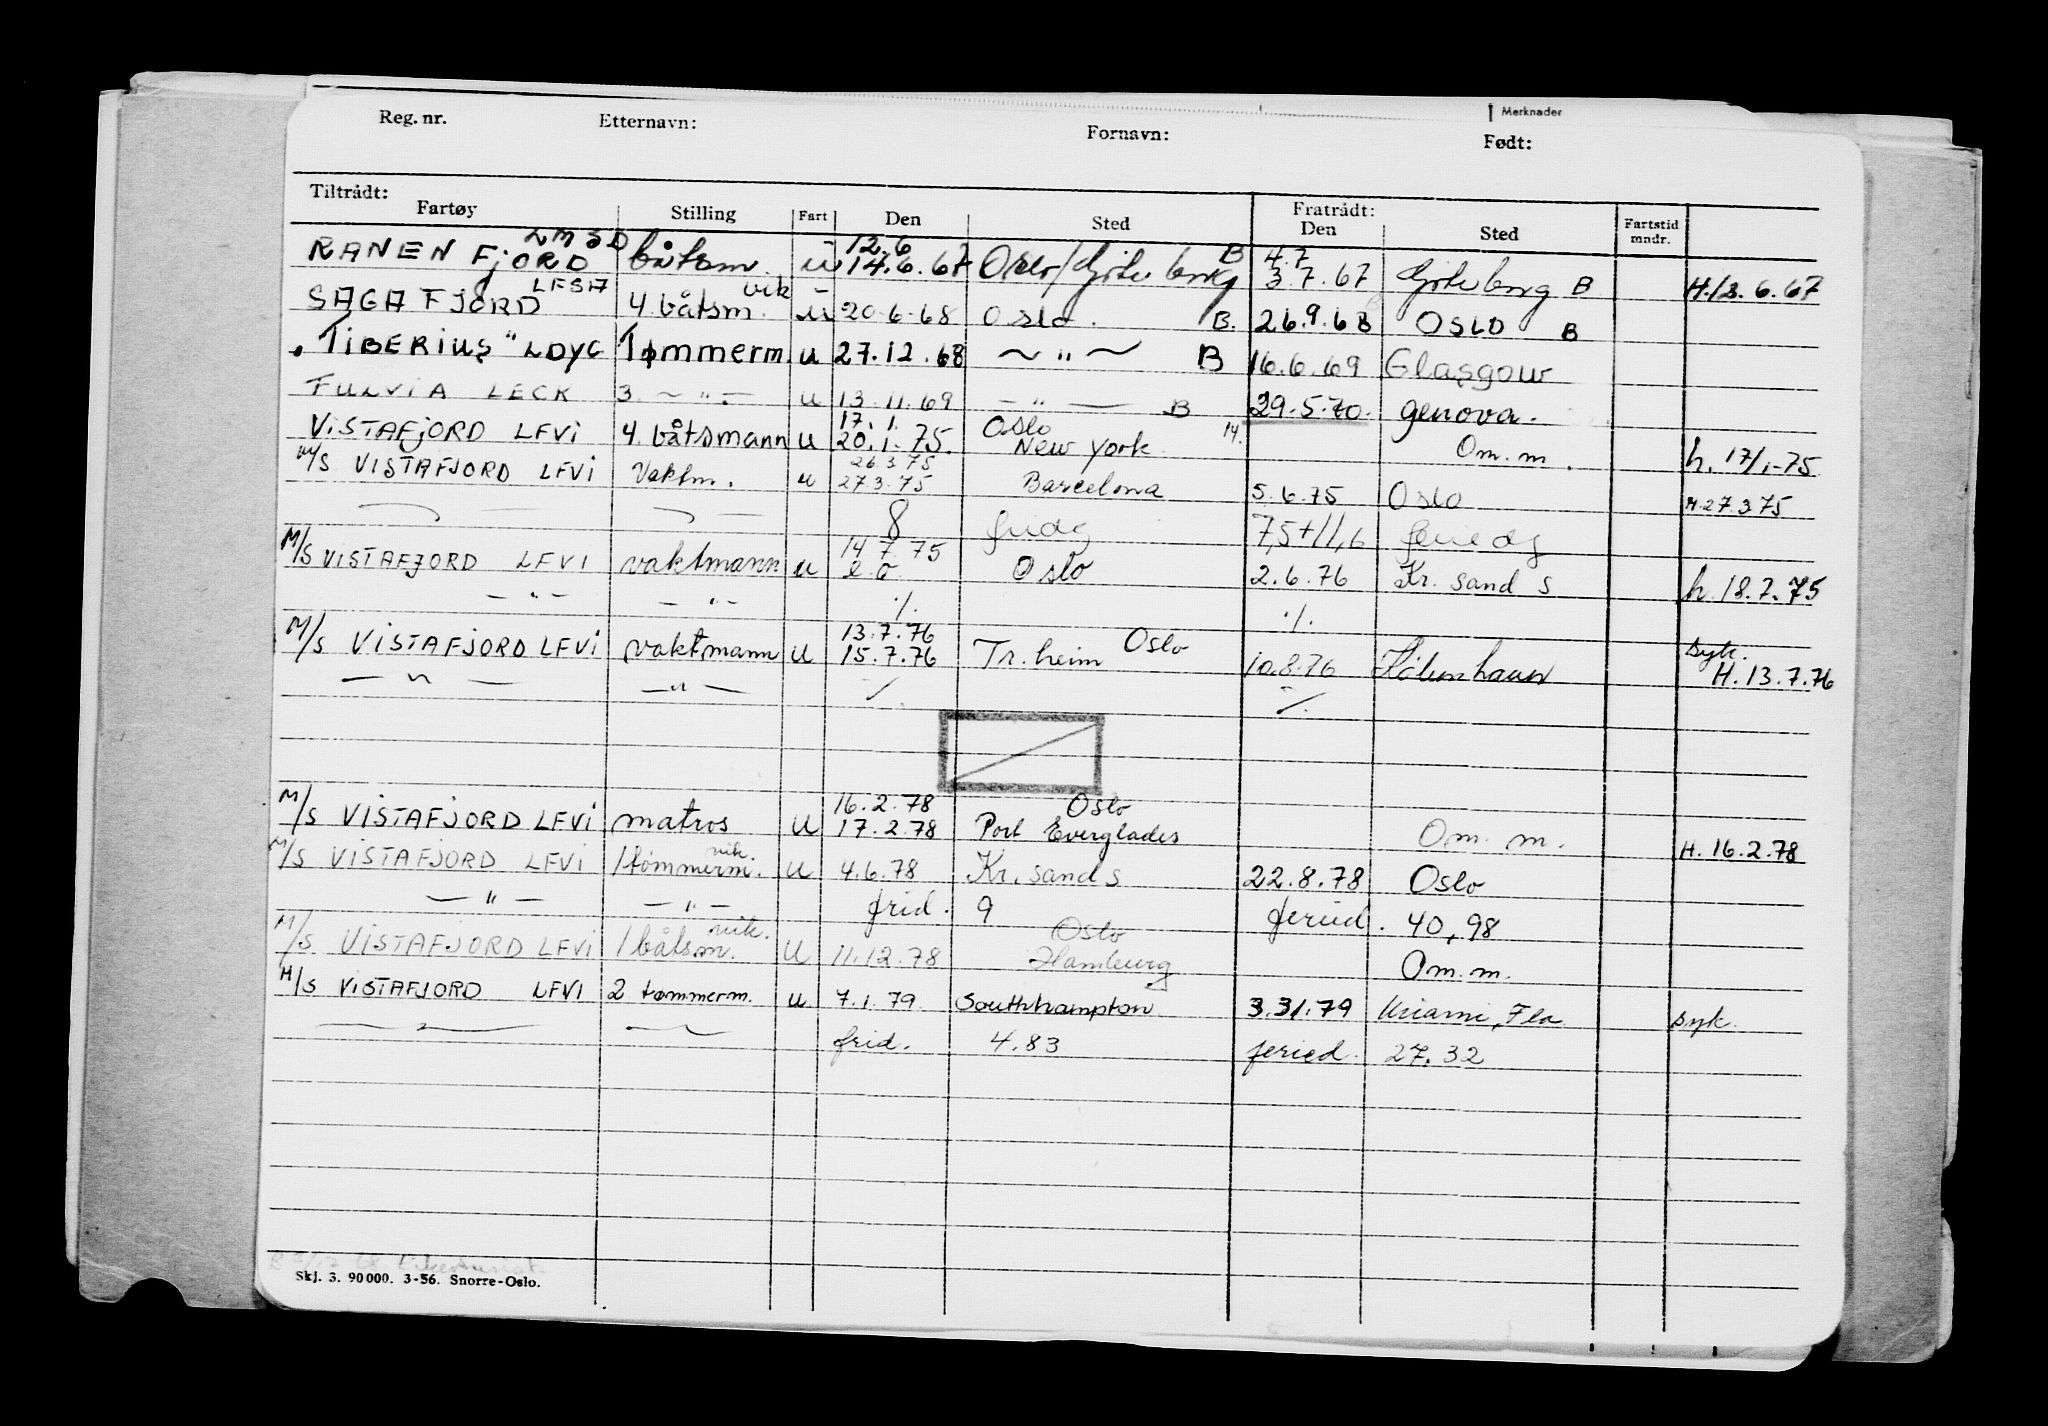 Merknader
Reg. nr. Etternavn: Fornavn: Født:
Tiltrådt: Fratrådt:
Fartøy Stilling Fart Den Sted Den Sted Fartstid mndr.
LMSD 12.6 B 4.7
RANENFJORD båtsm. u 14.6.67 Oslo/Göteborg 3.7.67 Göteborg B H.13.6.67
LFSA vik
SAGAFJORD 4. båtsm. u 20.6.68 Oslo. B. 26.9.68 OSLO B
"TIBERIUS" LDYG Tømmerm. u 27.12.68 — " — B 16.6.69 Glasgow
FULVIA LECK 3. — " — u 13.11.69 — " — B 29.5.70. genova.
17.1. Oslo 14.
VISTAFJORD LFVI 4. båtsmann u 20.1.75. New York. Om. m. h. 17/1-75
26.3.75
M/S VISTAFJORD LFVI Vaktm. u 27.3.75 Barcelona 5.6.75 Oslo H.27.3.75
8 fridg 7,5+11,6 feriedg
14.7.75
M/S VISTAFJORD LFVI vaktmann u e.o. Oslo 2.6.76 Kr. sand S h. 18.7.75
— " — — " — ./. ./.
13.7.76 Oslo syk.
M/S VISTAFJORD LFVI vaktmann u 15.7.76 Tr.heim 10.8.76 København H. 13.7.76
— " — — " — ./. ./.
16.2.78 Oslo
M/S VISTAFJORD LFVI matros u 17.2.78 Port Everglades Om. m. H. 16.2.78
vik.
M/S VISTAFJORD LFVI 1 tømmerm. u 4.6.78 Kr. sand S 22.8.78 Oslo
— " — — " — frid. 9 feried. 40,98
vik. Oslo
M/S VISTAFJORD LFVI 1 båtsm. u 11.12.78 Hamburg Om. m.
M/S VISTAFJORD LFVI 2 tømmerm. u 7.1.79. Southhampton 3.31.79 Miami, Fla. syk.
frid. 4.83 feried. 27.32
Skj. 3. 90000. 3-56. Snorre-Oslo.